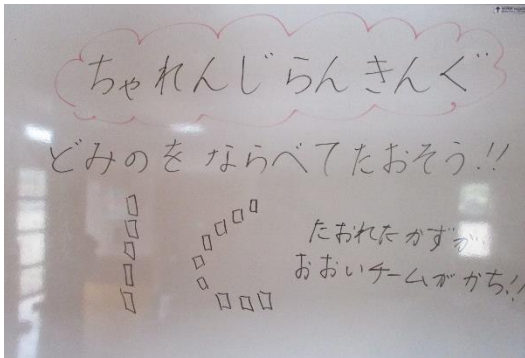 ちゃれんじらんきんぐ
どみのを ならべてたおそう!!
たおれたかずが
おおいチームがかち!!